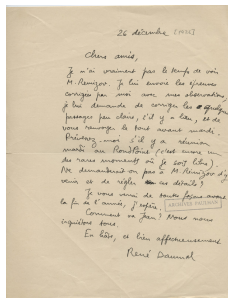 26 décembre [1935]
Chers amis,
Je n'ai vraiment pas le temps de voir
M. Remizov. Je lui envoie les épreuves
corrigées par moi avec mes observations,
je lui demande de corriger les quelques
passages peu clairs, s'il y a lieu, et de
vous renvoyer le tout avant mardi.
Prévenez moi s'il y a réunion
mardi au Rond Point (c'est un
des rares moments où je sois libre).
Ne demanderait-on pas à M. Remizov d'y
venir et de régler ces détails?
Je vous verrai de toute façon avant
la fin de l'année, j'espère.
Comment va Jean? Nous nous
inquiétons tous.
En hâte, et bien affectueusement
René Daumal
ARCHIVES PAULHAN